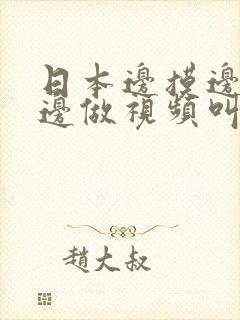 日本邊摸邊
邊做視頻叫
趙大叔